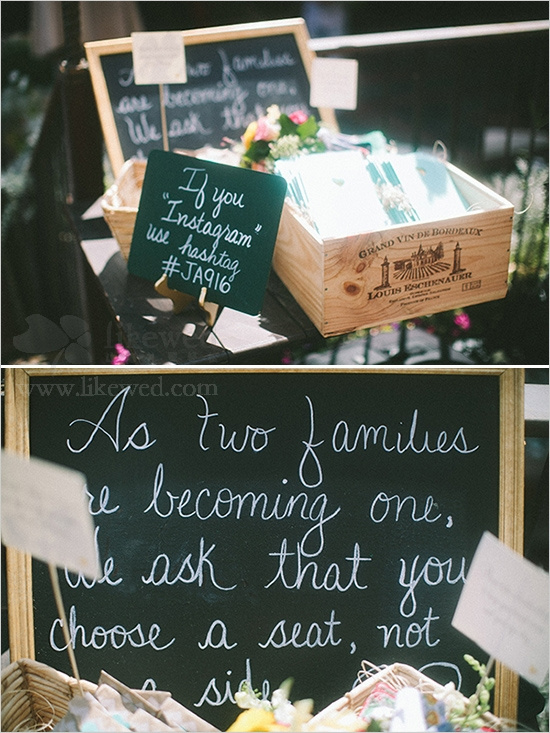 As two families
are becoming one,
We ask that you
If you
"Instagram"
use hashtag
#JA916
GRAND VIN DE BORDEAUX
LOUIS ESCHENAUER
likewed
www.likewed.com
As two families
are becoming one,
We ask that you
choose a seat, not
a side.